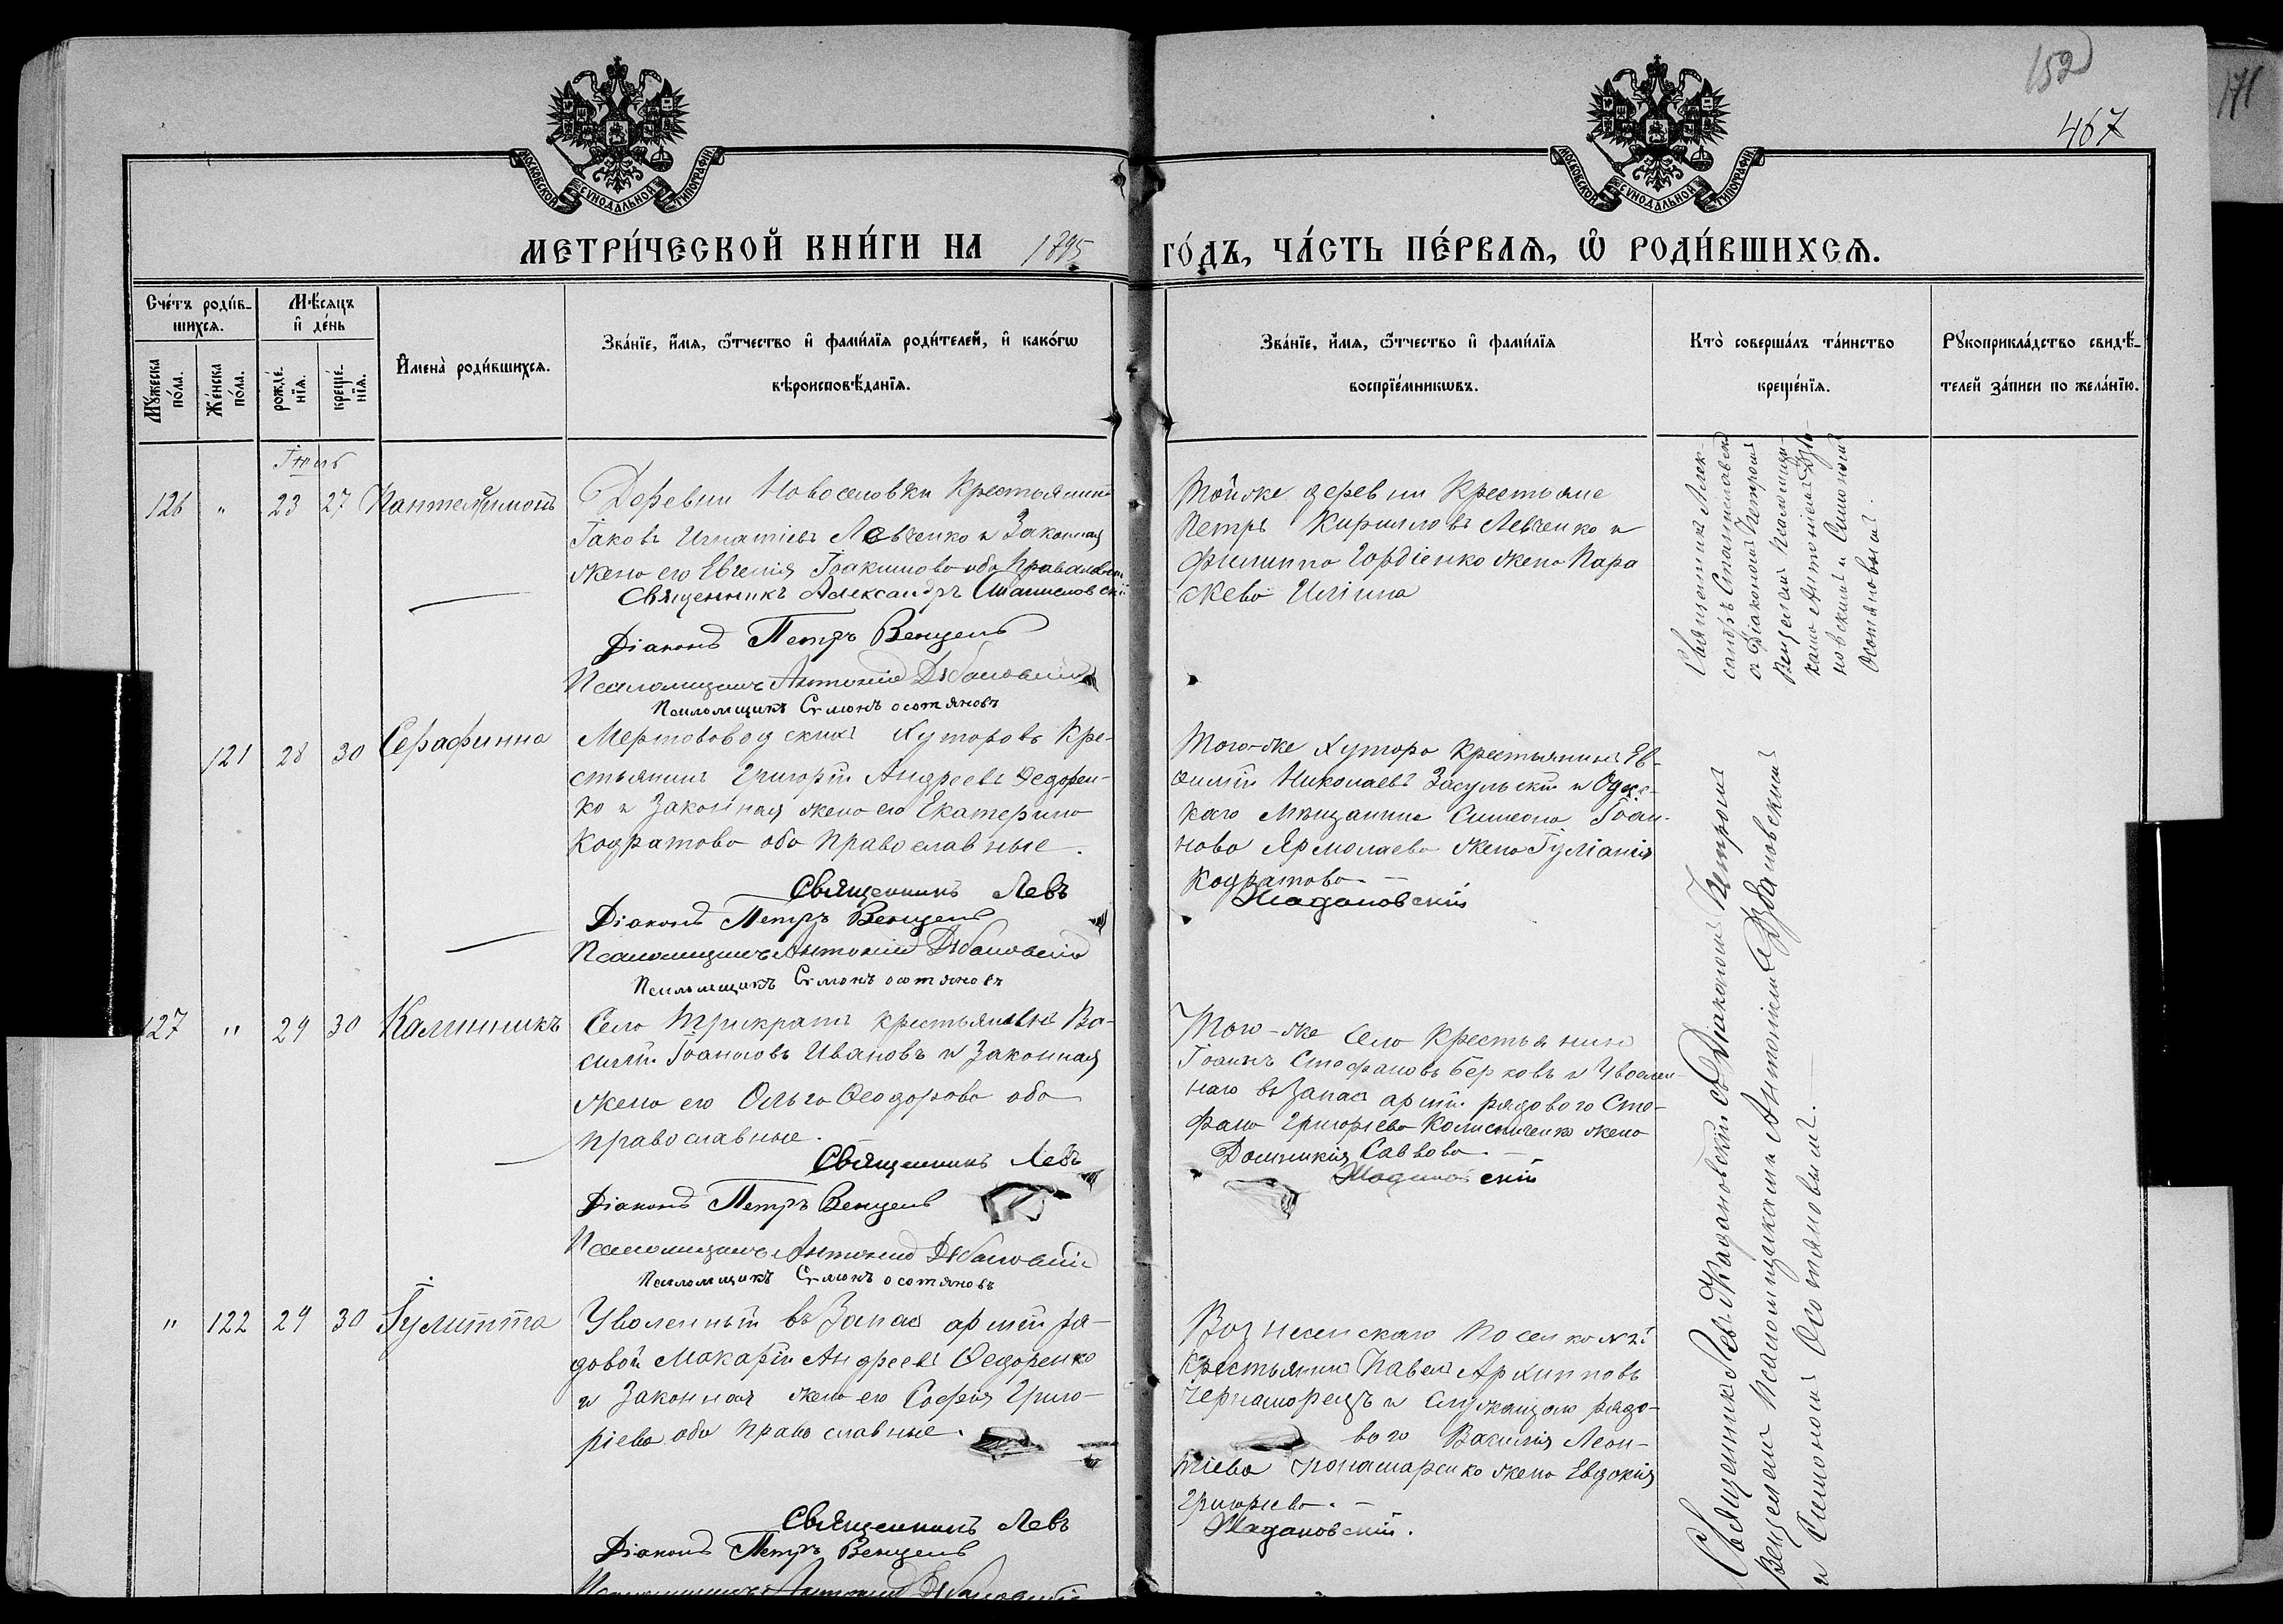 152
171
467
МОСКОВСКОЙ СѴНОДАЛЬНОЙ ТИПОГРАФІИ
МОСКОВСКОЙ СѴНОДАЛЬНОЙ ТИПОГРАФІИ
МЕТРИ́ЧЕСКОЙ КНИ́ГИ НА 1895 ГО́ДЪ, ЧА́СТЬ ПЕ́РВАѦ, Ѡ РОДИ́ВШИХСѦ.
Сче́тъ роди́в-
шихсѧ.
Мꙋ́жеска
по́ла.
Же́нска
по́ла.
Мѣ́сѧцъ
и҆ де́нь
рожде́-
нїѧ.
креще́-
нїѧ.
И҆мена̀ роди́вшихсѧ.
Зва́нїе, и҆́мѧ, ѻ҆́тчество и҆ фами́лїѧ роди́телей, и҆ како́гѡ
вѣроисповѣ́данїѧ.
Зва́нїе, и҆́мѧ, ѻ҆́тчество и҆ фами́лїѧ
воспрїе́мникѡвъ.
Кто̀ соверша́лъ та́инство
креще́нїѧ.
Рꙋкоприкла́дство свидѣ́-
телей за́писи по жела́нїю.
126 " 23 27 Пантелеимонъ
Деревни Новоселовки Крестьянинъ
Іаковъ Игнатіевъ Левченко и Законная
жена его Евгенія Іоакимова оба Православн
Священникъ Александръ Станиславскій
Діаконъ Петръ Венцель
Псаломщикъ Антоній Дзбановскій
Псаломщикъ Симонъ Осотяновъ
Тойже деревни Крестьяне
Петръ Кирилловъ Левченко и
Филиппа Гордіенко жена Пара
скева Иліина
Священникъ Алек-
сандръ Станиславскій
съ Діакономъ Петромъ
Венцелемъ Псаломщи-
ками Антоніемъ Дзба-
новскимъ и Симономъ
Осотяновымъ.
121 28 30 Серафинна
Мертвоводскихъ Хуторовъ Кре-
стьянинъ Григорій Андреевъ Федорен-
ко и Законная жена его Екатерина
Кодратова оба православные.
Священникъ Левъ
Жадановскій
Діаконъ Петръ Венцель
Псаломщикъ Антоній Дзбановскій
Псаломщикъ Симонъ Осотяновъ
Того-же Хутора Крестьянинъ Ев-
фимій Николаевъ Засульскій и Одес-
каго Мѣщанина Симеона Іоан-
нова Ярмолаева жена Іуліанія
Кодратова
127 " 29 30 Калинникъ
Села Трикратъ крестьянинъ Ва-
силій Іоанновъ Ивановъ и Законная
жена его Ольга Феодорова оба
православные.
Священникъ Левъ
Жадановскій
Діаконъ Петръ Венцель
Псаломщикъ Антоній Дзбановскій
Псаломщикъ Симонъ Осотяновъ
Того-же Села Крестьянинъ
Іоаннъ Стефановъ Берковъ и Уволен-
наго въ Запас арміи рядового Сте-
фана Григоріева Колисниченко жена
Домникія Саввова
" 122 29 30 Іулитта
Уволенный въ Запас арміи ря-
довой Макарій Андреевъ Федоренко
и Законная жена его Софія Григо-
ріева оба православные.
Священникъ Левъ
Жадановскій.
Діаконъ Петръ Венцель
Псаломщикъ Антоній Дзбановскій
Вознесенскаго Поселка
Крестьянинъ Павелъ Архипповъ
Черноморецъ и Служащаго рядо-
вого Василія Леон-
тіева Понамаренко жена Евдокія
Григоріева.
Священникъ Левъ Жадановскій съ Діакономъ Петромъ
Венцелемъ Псаломщиками Антоніемъ Дзбановскимъ
и Симономъ Осотяновымъ.